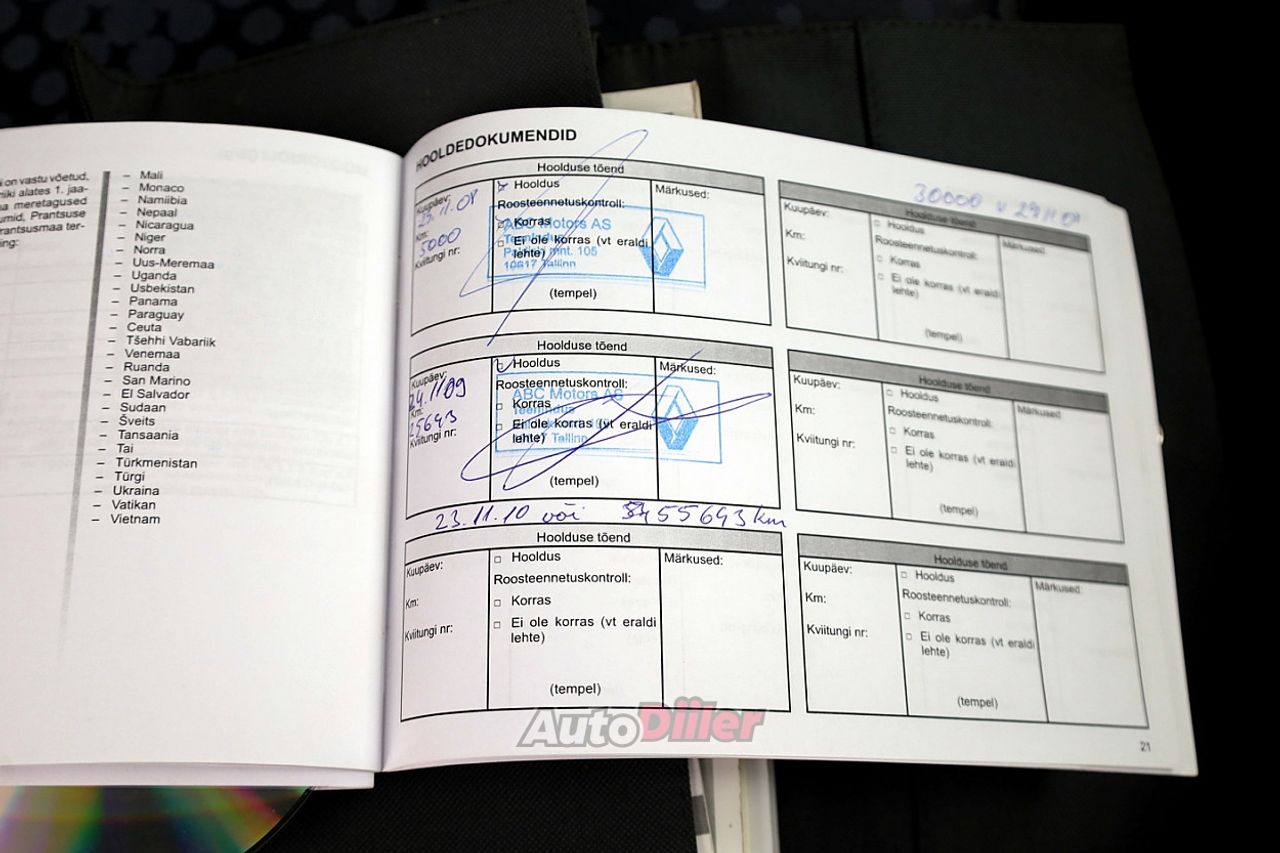 i on vastu võetud,
riiki alates 1. jaa-
a meretagused
umid, Prantsuse
rantsusmaa ter-
ing:
– Mali
– Monaco
– Namiibia
– Nepaal
– Nicaragua
– Niger
– Norra
– Uus-Meremaa
– Uganda
– Usbekistan
– Panama
– Paraguay
– Ceuta
– Tšehhi Vabariik
– Venemaa
– Ruanda
– San Marino
– El Salvador
– Sudaan
– Šveits
– Tansaania
– Tai
– Türkmenistan
– Türgi
– Ukraina
– Vatikan
– Vietnam
HOOLDEDOKUMENDID
Hoolduse tõend
Kuupäev:
.11.08
Km:
5000
Kviitungi nr:
Hooldus
Roosteennetuskontroll:
Korras
Ei ole korras (vt eraldi
lehte)
(tempel)
Märkused:
ABC Motors AS
mnt. 105
10617 Tallinn
Hoolduse tõend
Kuupäev:
24.11.09
Km:
25643
Kviitungi nr:
Hooldus
Roosteennetuskontroll:
Korras
Ei ole korras (vt eraldi
lehte)
(tempel)
Märkused:
ABC Motors AS
Teenindus
Tallinn
23.11.10 või 55643 km
Hoolduse tõend
Kuupäev:
Km:
Kviitungi nr:
Hooldus
Roosteennetuskontroll:
Korras
Ei ole korras (vt eraldi
lehte)
(tempel)
Märkused:
30000 v 29.11.09
Hoolduse tõend
Kuupäev:
Km:
Kviitungi nr:
Hooldus
Roosteennetuskontroll:
Korras
Ei ole korras (vt eraldi
lehte)
(tempel)
Märkused:
Hoolduse tõend
Kuupäev:
Km:
Kviitungi nr:
Hooldus
Roosteennetuskontroll:
Korras
Ei ole korras (vt eraldi
lehte)
(tempel)
Märkused:
Hoolduse tõend
Kuupäev:
Km:
Kviitungi nr:
Hooldus
Roosteennetuskontroll:
Korras
Ei ole korras (vt eraldi
lehte)
(tempel)
Märkused:
21
AutoDiiler